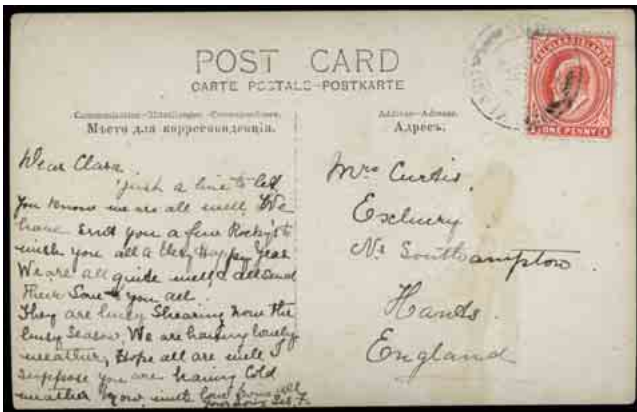 POST CARD
CARTE POSTALE-POSTKARTE
Communication-Mitteilungen-Correspondence.
Мѣсто для корреспонденціи.
Address-Adresse.
Адресъ.
FALKLAND ISLANDS
ONE PENNY
Dear Clara
just a line to let
you know we are all well. We
have send you a few to
wish you all a Very Happy Year
We are all quite well & all send
their love to you all.
They are busy Shearing now the
busy Season. We are having lovely
weather, Hope all are well I
suppose you are having Cold
weather now with love from all
Mrs Curtis.
Exbury
Nr Southampton.
Hands.
England